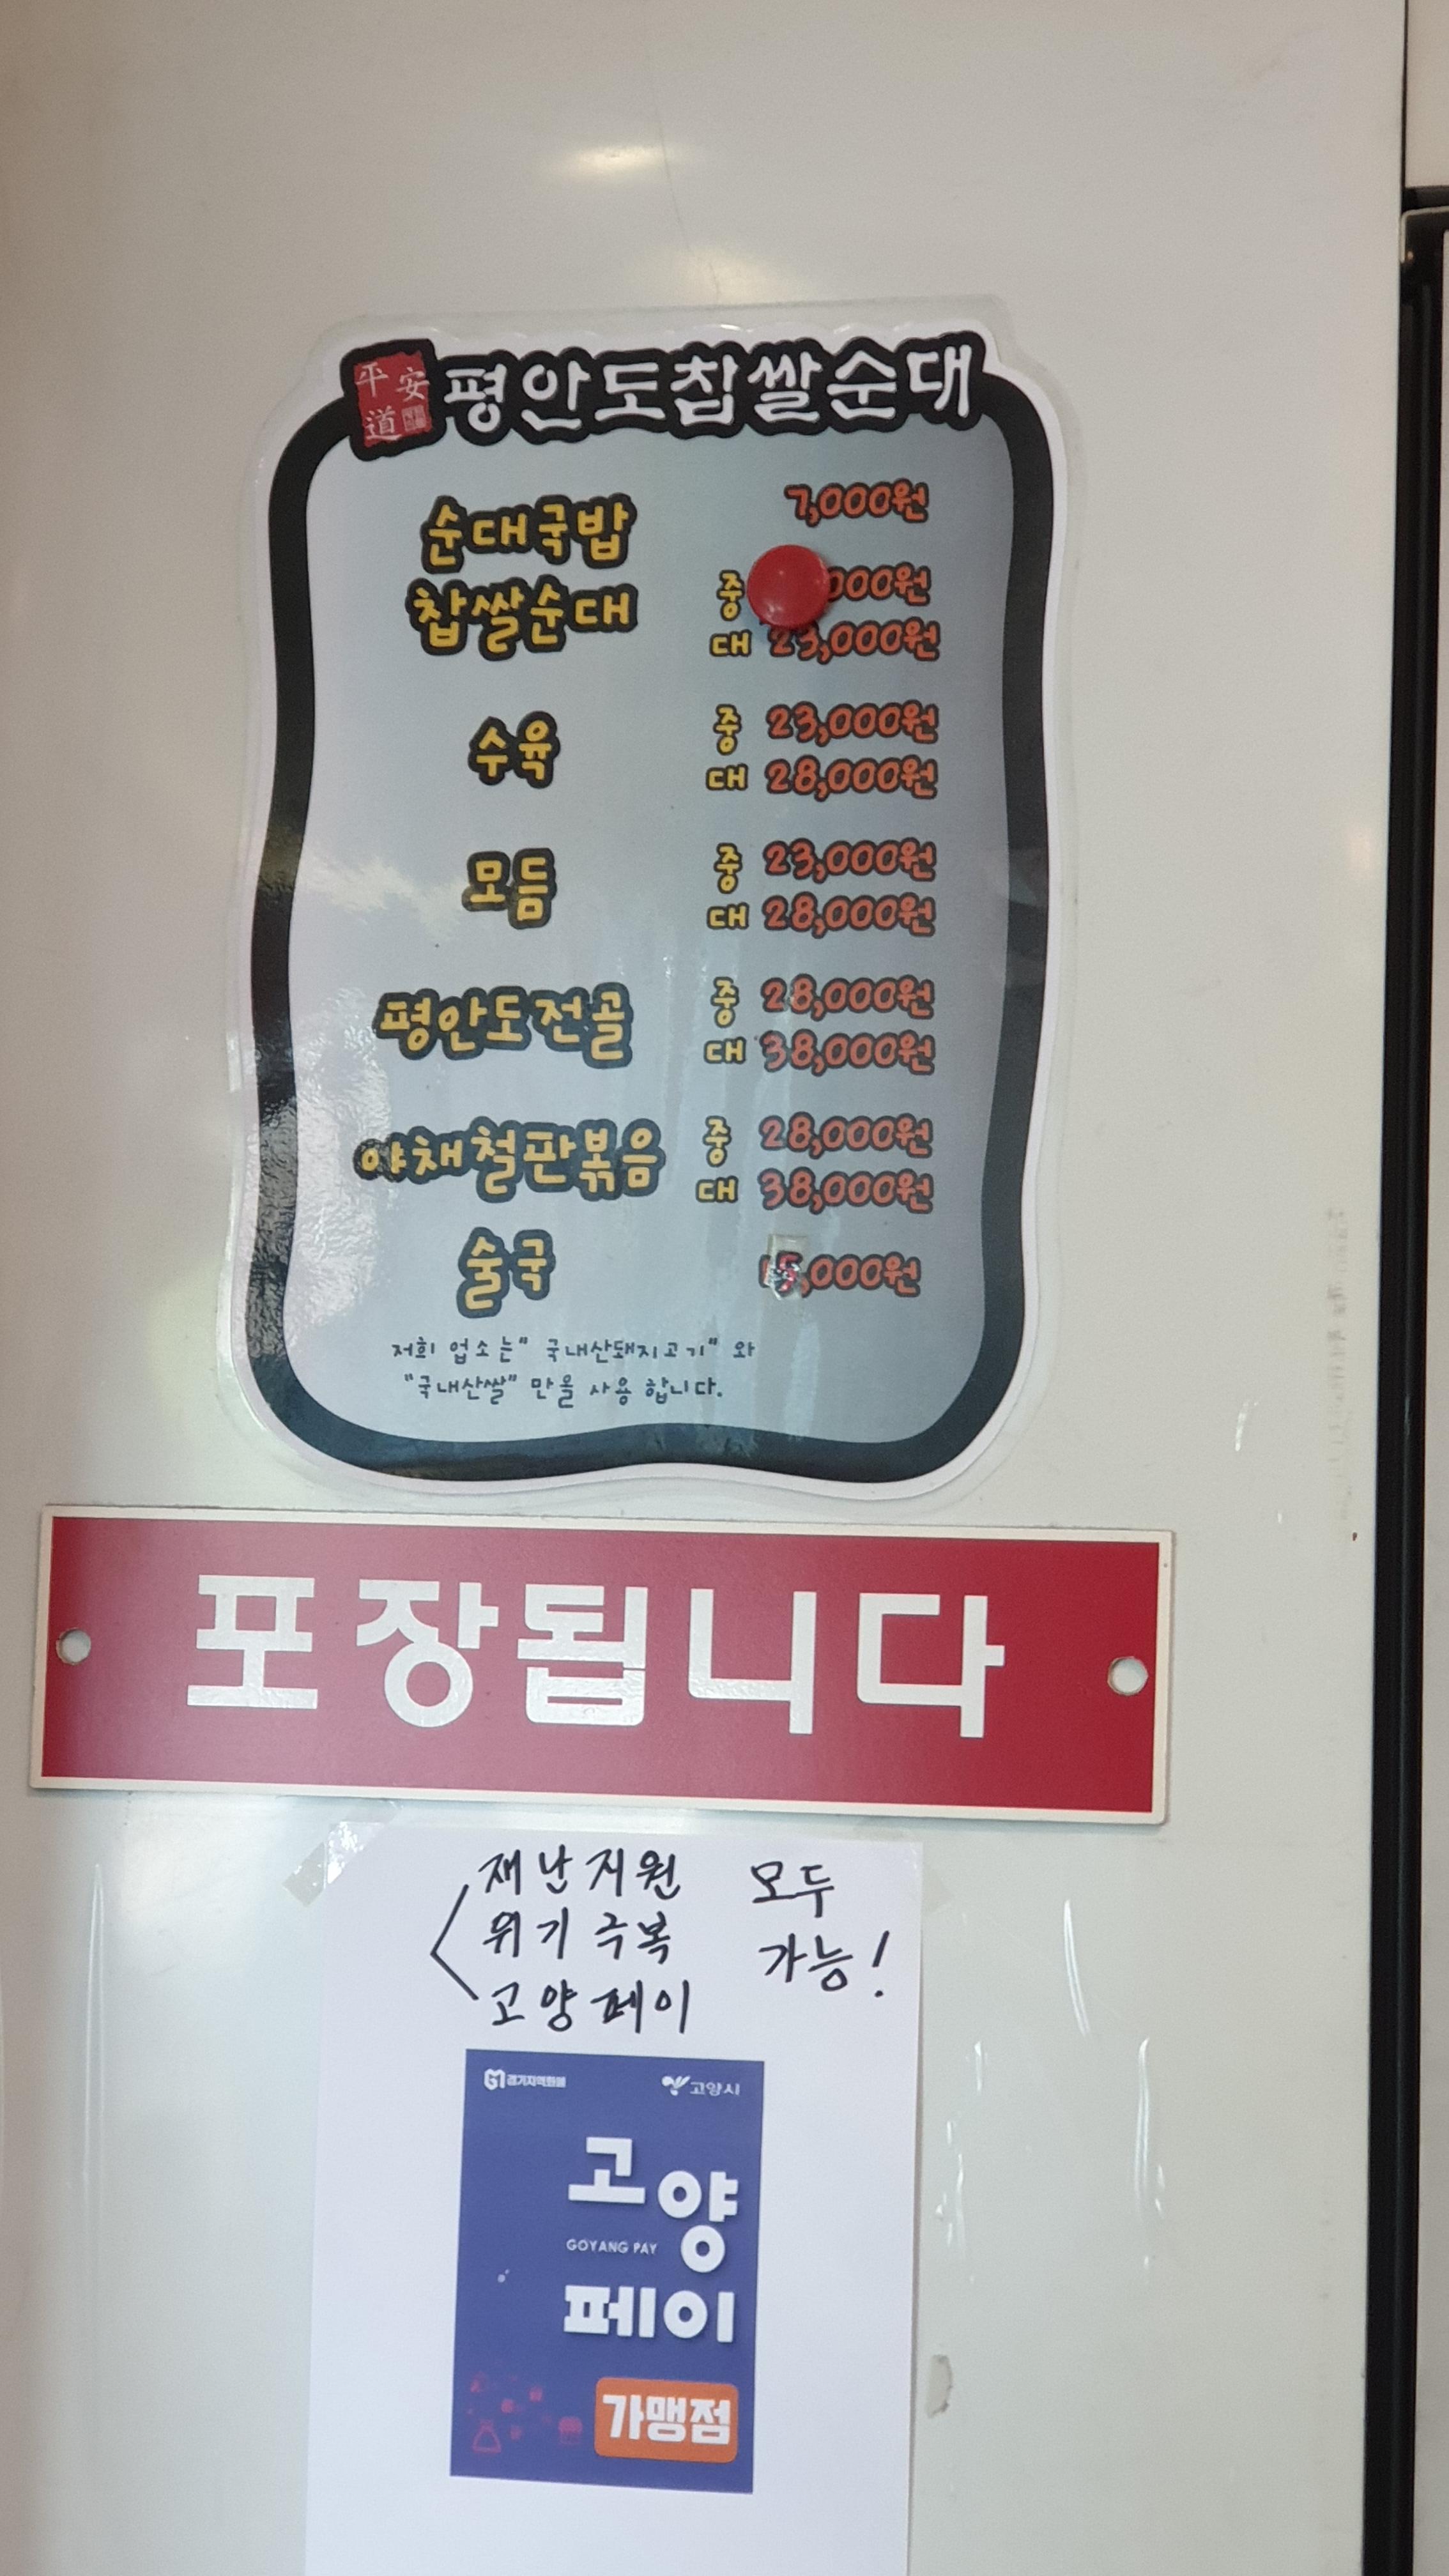 平安道 평안도찹쌀순대
순대국밥 7,000원
찹쌀순대 중 000원
대 23,000원
수육 중 23,000원
대 28,000원
모듬 중 23,000원
대 28,000원
평안도전골 중 28,000원
대 38,000원
야채철판볶음 중 28,000원
대 38,000원
술국 15,000원
저희 업소는 "국내산돼지고기" 와
"국내산쌀" 만을 사용 합니다.
포장됩니다
재난지원 모두
위기극복 가능!
고양페이
경기지역화폐 고양시
고양
GOYANG PAY
페이
가맹점